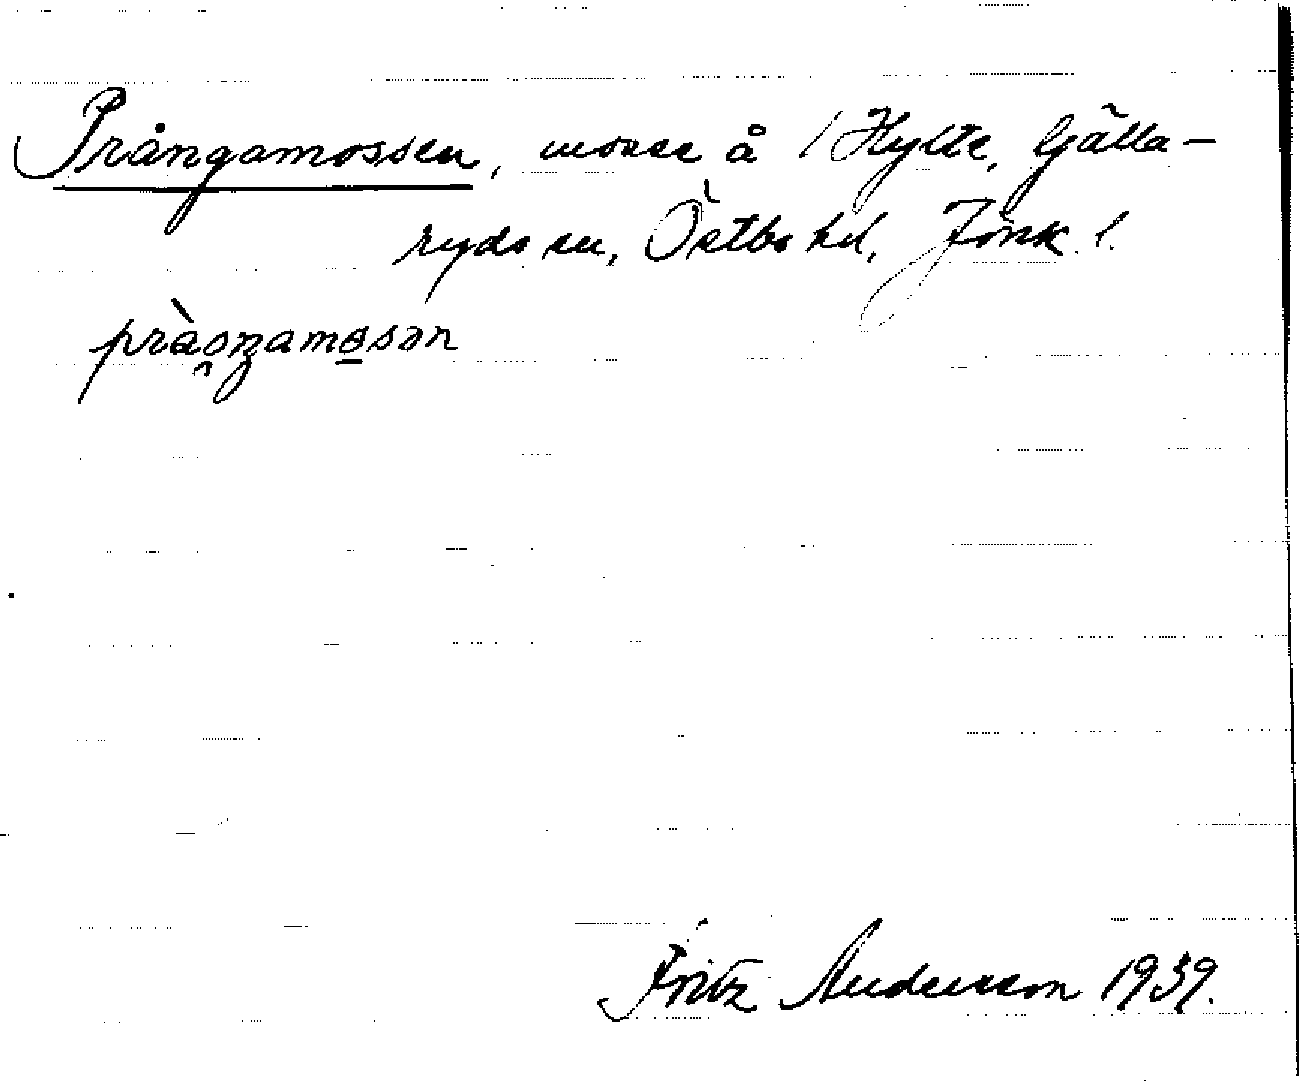 Prångamossen, mosse å 1 Hylte, Gälla-
ryds sn, Östbo hd, Jönk. l.
prào̭ŋamo̲sən
Fritz Anderson 1939.